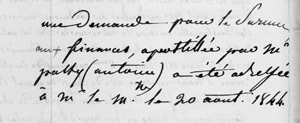 une demande pour le
aux finances, apostillée pour Mr
(antoine) a été adressée
à Mr le Mre le 20 août 1844